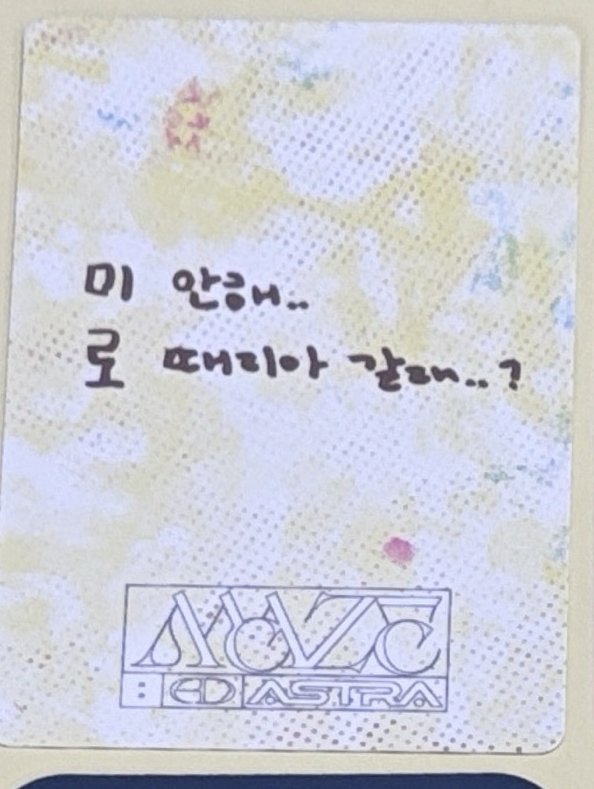 미 안해..
로 때리아 갈래..?
MAZE
: AD ASTRA